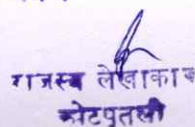 राजस्व लेखाकार
कोटपुतली